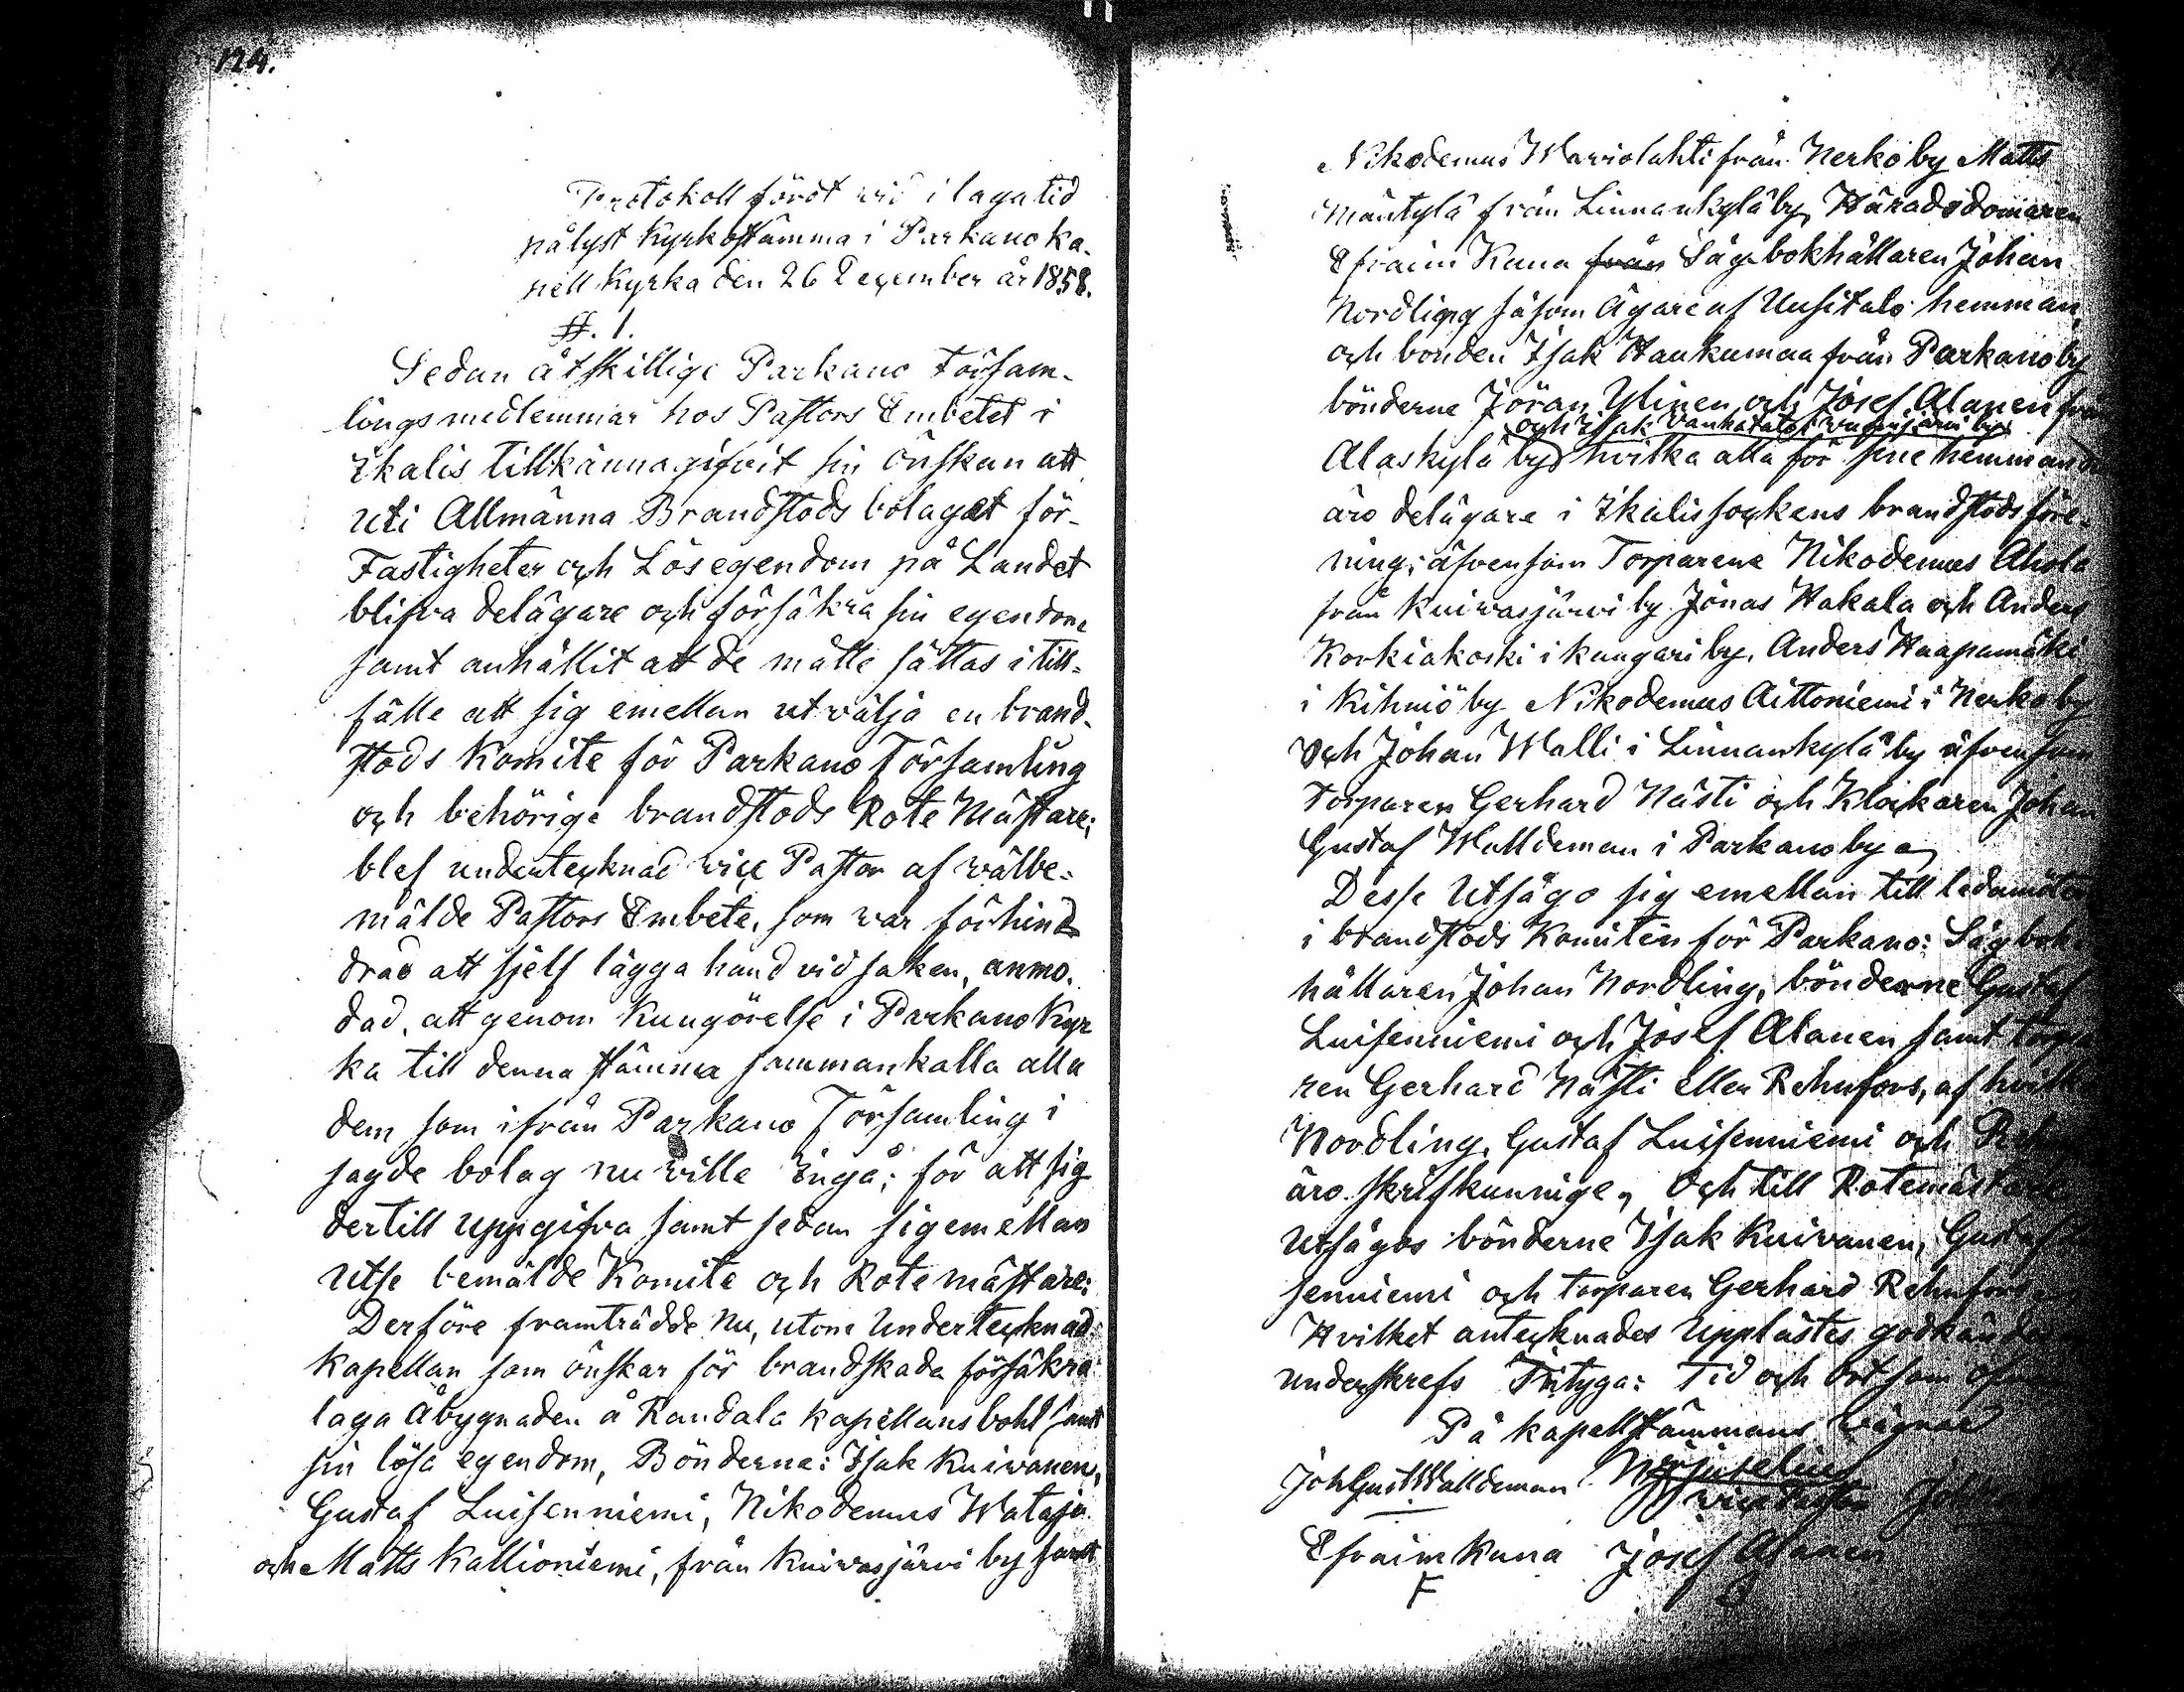 124.
Protokoll fördt vid i laga tid
pålyst Kyrkostämma i Parkano ka-
pell Kyrka den 26 December år 1858.
§. 1.
Sedan åtskillige Parkano Försam-
lings medlemmar hos Pastors Embetet i
Ikalis tillkännagifvit sin önskan att
uti Allmänna Brandstods bolaget för
Fastigheter och Lösegendom på Landet
blifva delägare och försäkra sin egendom
samt anhållit att de måtte sättas i till-
fälle att sig emellan utvälja en brand-
stods Komite för Parkano Församling
och behörige brandstods Rote Mästare;
blef undertecknad vice Pastor af välbe-
mälde Pastors Embete, som war förhind-
drad att sjelf lägga hand vid saken, anmo-
dad, att genom Kungörelse i Parkano Kyr
ka till denna stämma sammankalla alla
dem som ifrån Parkano Församling i
sagde bolag nu ville Ingå; för att sig
dertill uppgifva samt sedan sig emellan
utse bemälde Komite och Rote mästare:
Derföre framträdde nu, utom Undertecknad
Kapellan som önskar för brandskada försäkra
laga Åbygnaden å Kandala kapellans bohl samt
sin lösa egendom, Bönderne: Isak Kuivanen,
Gustaf Luisenniemi, Nikodemus Wataja
och Matts Kallioniemi, från Kuivasjärvi by samt
Nikodemus Wariolahti från Nerkö by Matts
Mäntylä från Linnankylä by, Häradsdomaren
Efraim Kuna från Sågbokhållaren Johan
Nordling såsom Ägare af Uusitalo hemman,
och bonden Isak Haukuman från Parkano by
bönderne Jöran Ylinen och Josef Alanen från
och Isak Vanhatalo i Vuorijärvi by
Alaskylä by hvilka alla för sine hemman
äro delägare i Ikalis sockens brandstodsföre-
ning; äfvensom Torparene Nikodemus Ahola
från Kuivasjärvi by Jonas Hakala och Anders
Korkiakoski i Kangari by, Anders Haapamäki
i Kihniö by Nikodemus Aittoniemi i Nerkö by
och Johan Walli i Linnankylä by äfvensom
Torparen Gerhard Nästi och Klockaren Johan
Gustaf Walldeman i Parkano by
Desse Utsågo sig emellan till ledamöter
i brandstods Komitén för Parkano: Sågbok-
hållaren Johan Nordling, bönderne Gustaf
Luisenniemi och Josef Alanen samt torpa
ren Gerhard Nästi eller Rehnfors, af hvilka
Nordling, Gustaf Luisenniemi och
äro skrifkunnige, Och till Rotemästare
Utsågos bönderne Isak Kuivanen, Gustaf
senniemi och torparen Gerhard Rehnfors
Hvilket antecknades Upplästes godkändes
underskrefs Bityga: Tid och Ort som ofvan
På kapellstämmans vägnar
Joh Gust Walldeman
vice Pastor
Efraim Kuna Josef Alanen